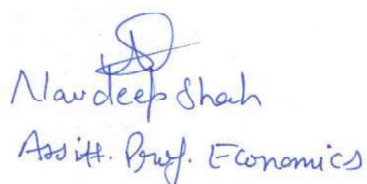 Navdeep Shah
Assitt. Prof. Economics